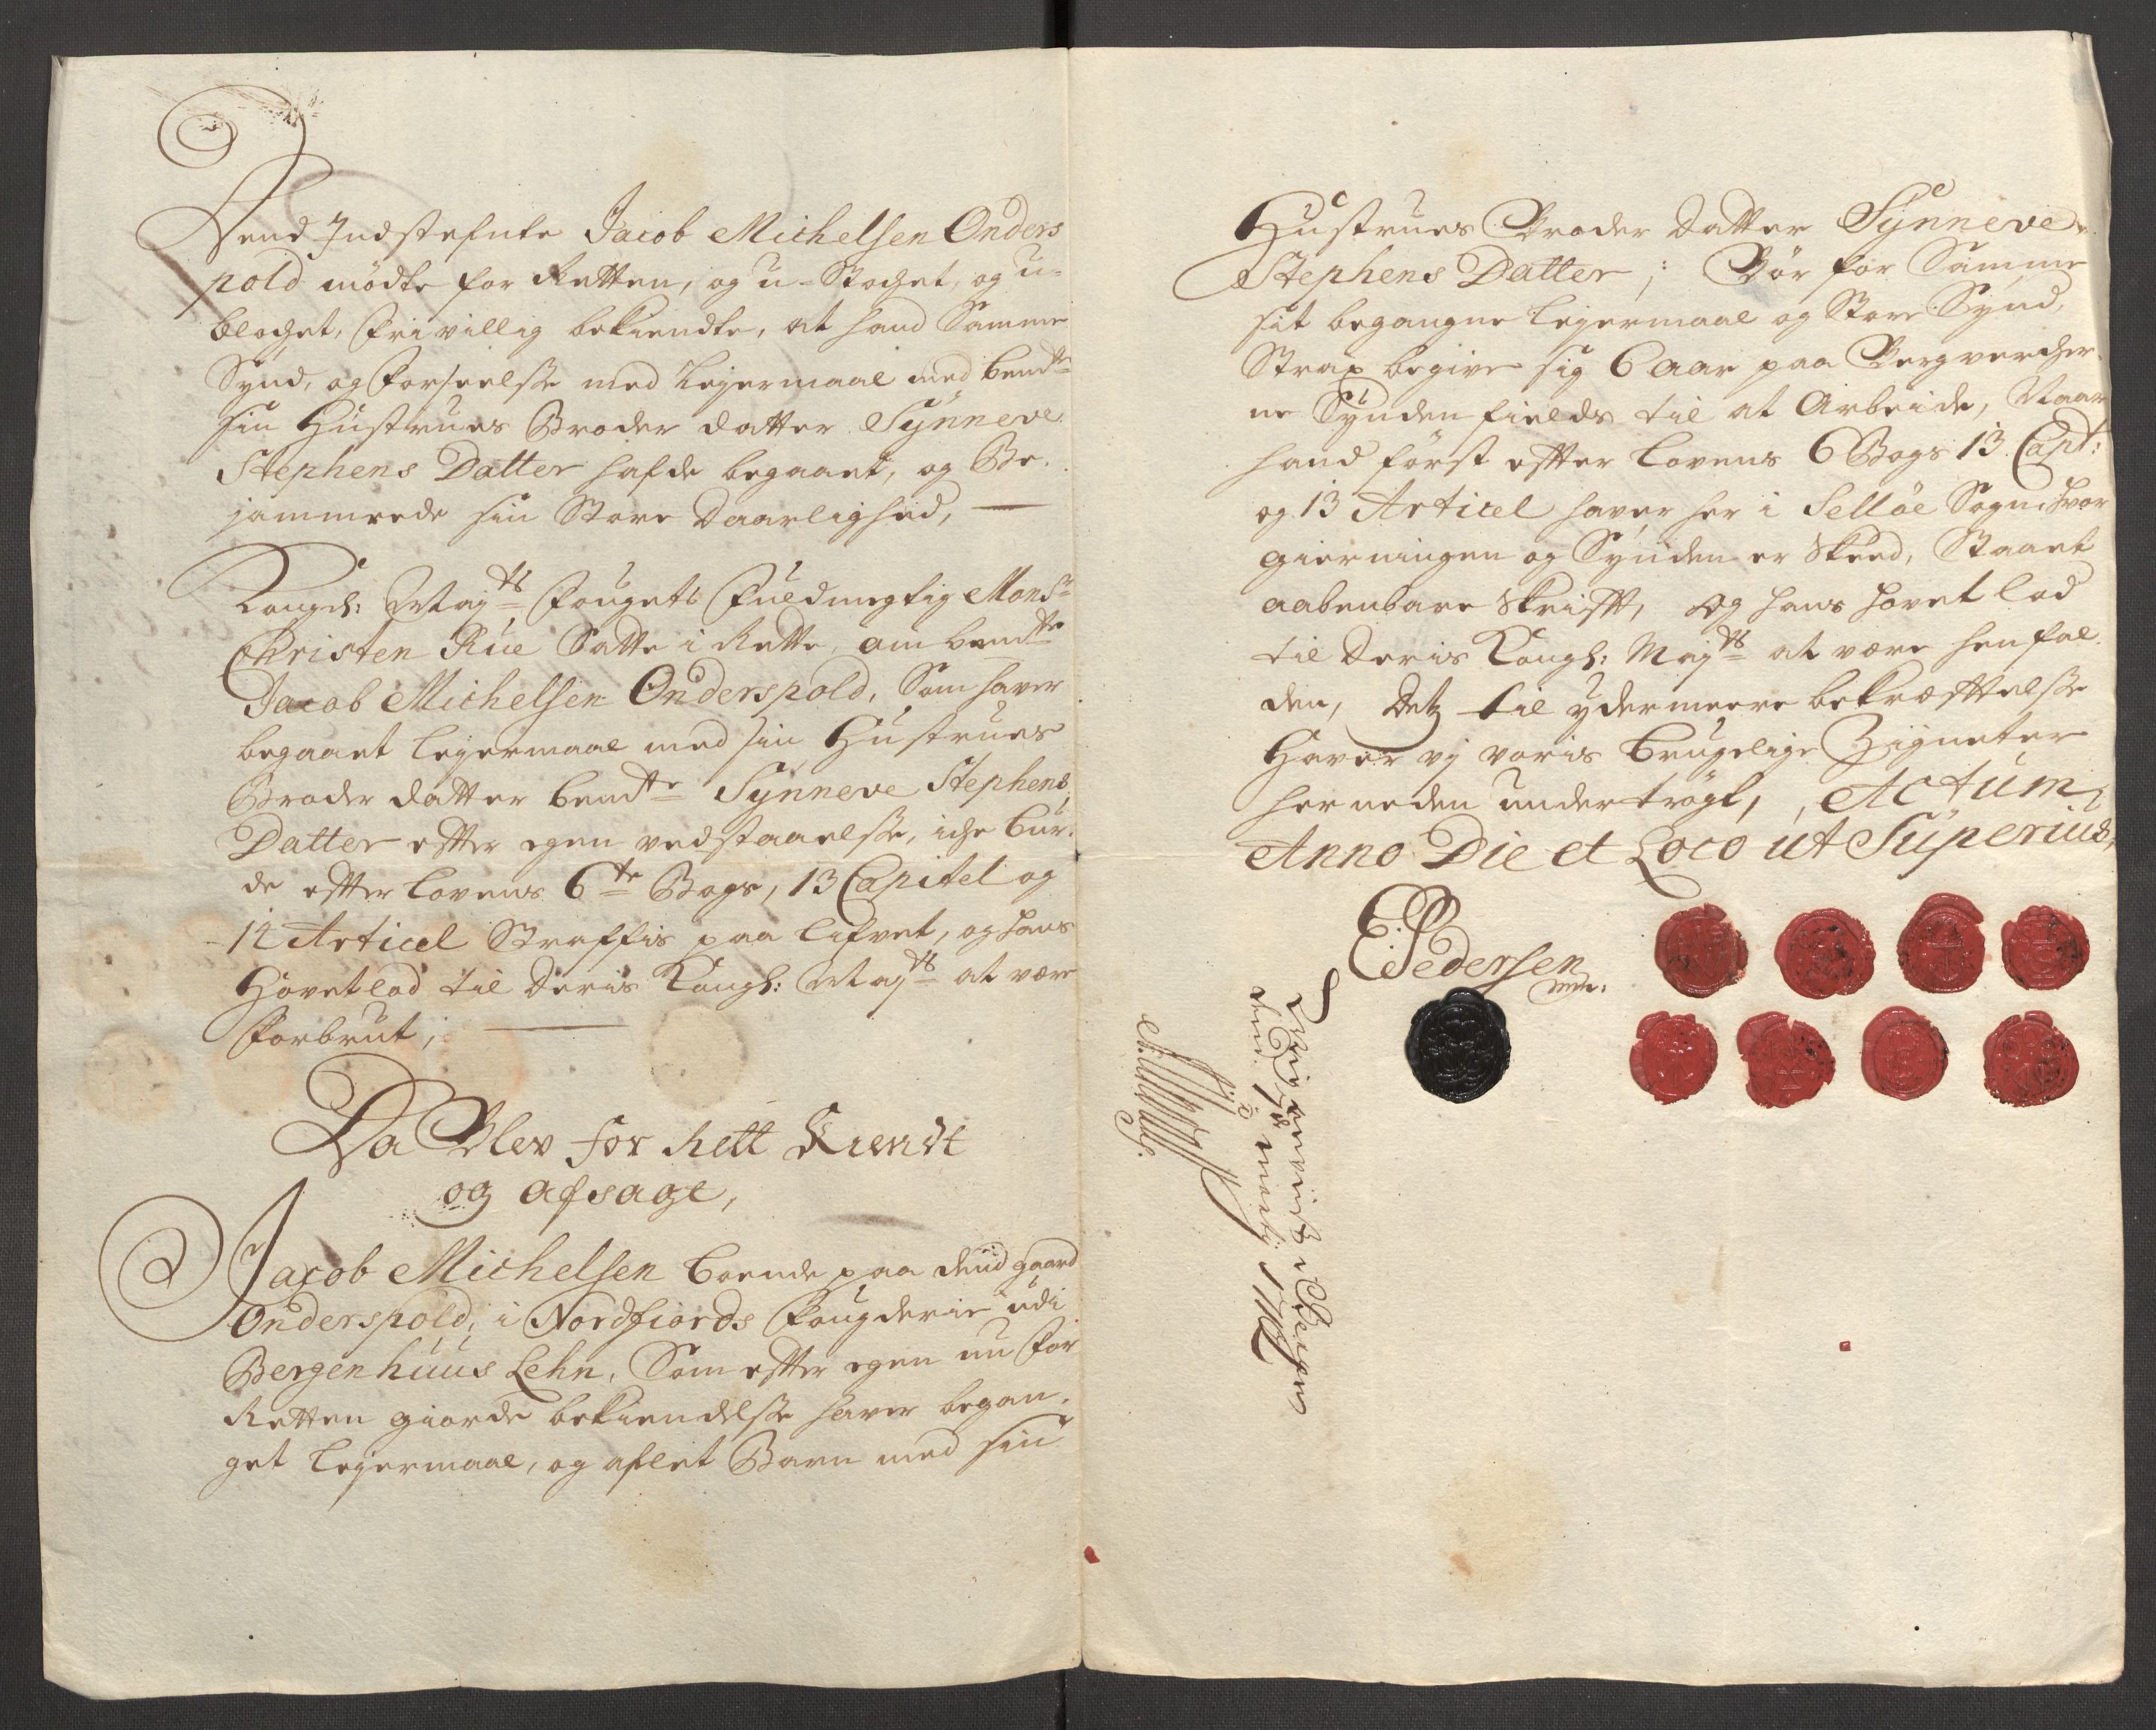 Dend Indstefnte Jacob Michelsen Onders
pold mödte for Retten, og u-Stochet, og u-
blochet, frivillig bekiendte, at hand Samme
Synd, og forseelse med Leyermaal med bemte
sin Hustrues Broder datter Synneve
Stephens Datter hafde begaaet, og Be-
jammrede sin Store Daarlighed,
Kongl: Mayts fougets fuldmegtig Monsr
Christen Rue Satte i Rette, om bemte
Jacob Michelsen Onderspold, Som haver
begaaet Leyermaal med sin Hustrues
Broder datter bemte Synneve Stephens
Datter efter egen vedstaaelse, iche bur-
de efter Lovens 6te Bogs, 13 Capitel og
14 Articel Straffis paa Lifvet, og hans
Hovetlod til Deris Kongl: Mayts at være
forbrut;
Da Blev for Rett Kiendt
og afsagt,
Jacob Michelsen boende paa dend gaard
Onderspold, i Nordfiords fougderie udi
Bergenhuus Lehn, Som efter egen nu for
Retten giorde bekiendelse haver began-
get Leyermaal, og aflet Barn med sin
Hustrues Broder Datter Synneve
Stephens Datter; Bör for Samme
sit begangne Leyermaal og Store Synd,
Strax begive sig 6 aar paa Bergvercher-
ne Synden fields til at Arbeide, Naar
hand först efter Lovens 6 Bogs 13 Capt:
og 13 Articel haver her i Selløe Sogn, hvor
gierningen og Synden er Skeed, Staaet
aabenbare Skrifft, Og hans hovet lod
til Deris Kongl: Mayts at være henfal-
den, Dets til ydermeere bekræfttelse
Haver vj voris brugelige Zigneter
her neden undertrögt, Actum
Anno Die et Loco ut Superius,
EPedersen
mp.
i Bergen
den 1708